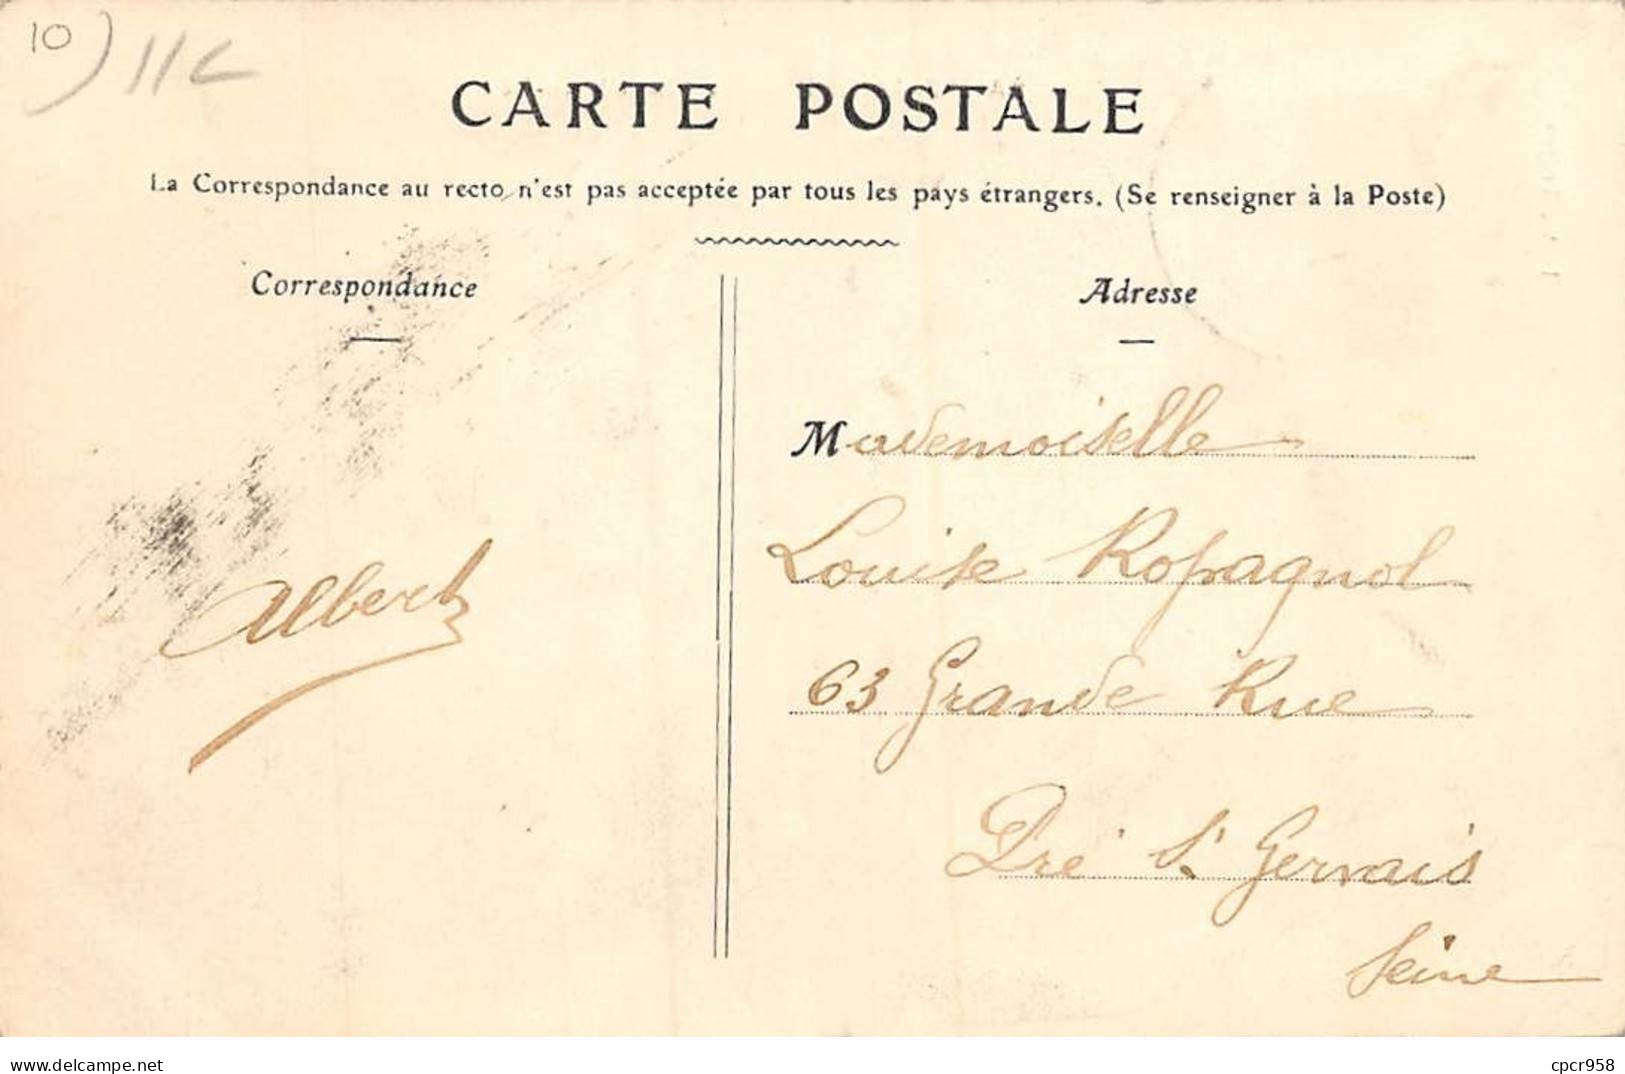 10
CARTE POSTALE
La Correspondance au recto n'est pas acceptée par tous les pays étrangers. (Se renseigner à la Poste)
Correspondance
Adresse
Mademoiselle
Louise Ropagnol
63 Grande Rue
Pré St Gervais
Seine
Albert
www.delcampe.net
cpcr958